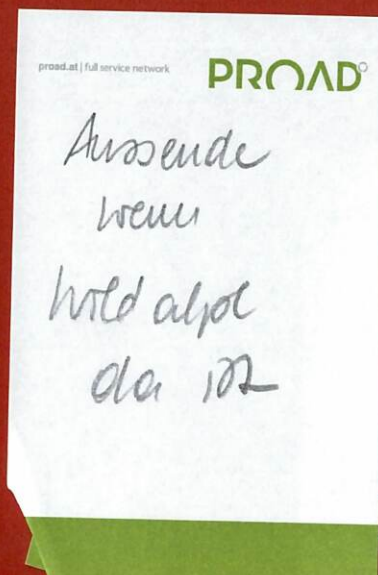 proad.at | full service network
PROAD
Aussende
wenn
da ist